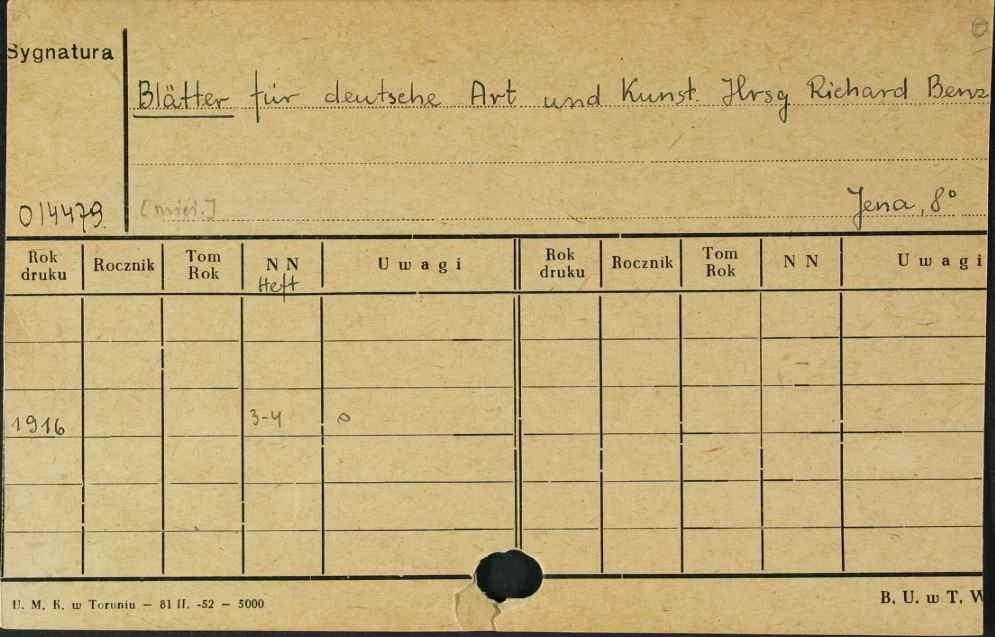 Sygnatura
Blätter für deutsche Art und Kunst. Hrsg Richard Benz
014479 [mies.] Jena, 8°
Rok druku Rocznik Tom Rok NN Heft Uwagi Rok druku Rocznik Tom Rok NN Uwagi
1916 3-4 o
U. M. K. w Toruniu — 81 II. -52 — 5000 B. U. w T. W